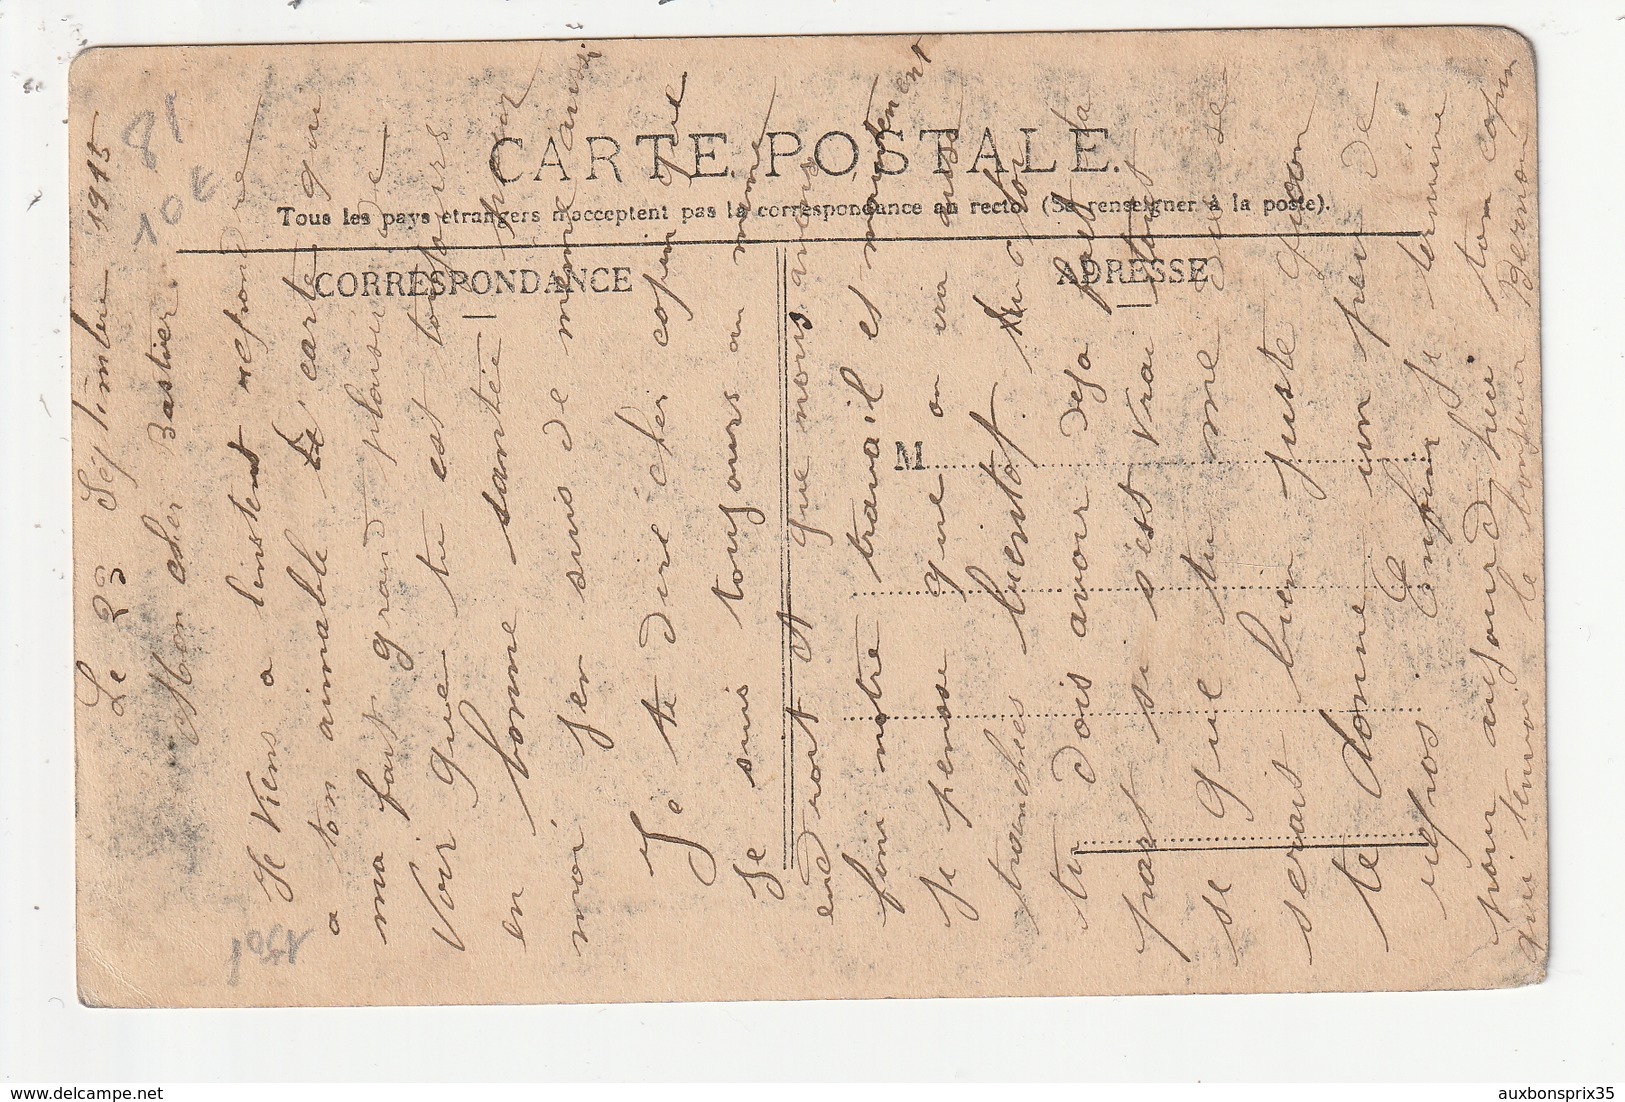 CARTE POSTALE.
Tous les pays étrangers n'acceptent pas la correspondance au recto. (Se renseigner à la poste).
CORRESPONDANCE
ADRESSE
M
Le 23 Septembre 1915
Mon cher Bastier
Je viens a linstent repondre
a ton aimable carte qui
ma fait grand plaisir de
Voir que tu est toujours
en bonne santée pour
moi jen suis de meme aussi
Je te dire cher copin que
Je suis toujours au meme
endroit et que nous avons
fini notre travail et maintenent
je pense que on ira aus
tranchées bientot.
tu dois avoir deja fait ta
part si sést vrai tout
se que tu me dis se
serait bien juste quon
te donne un peu de
repos Enfin Je termine
pour aujourd'hui ton copin
qui tenvoi le bonjour Bernon
81
10€
150f
auxbonsprix35